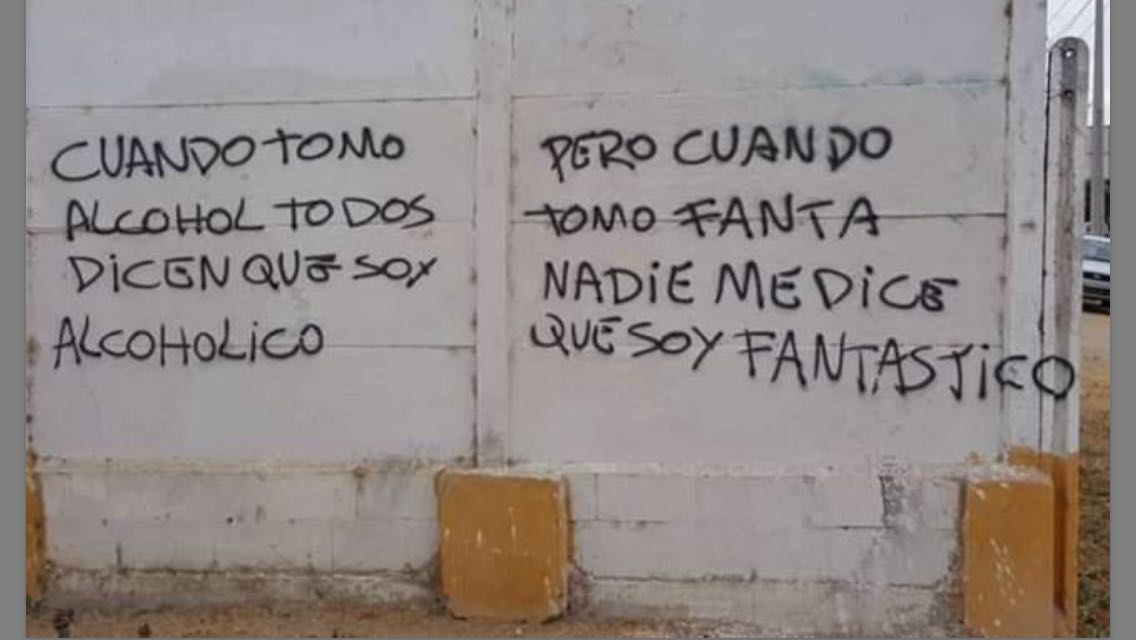 CUANDO TOMO
ALCOHOL TODOS
DICEN QUE SOY
ALCOHOLiCO
PERO CUANDO
TOMO FANTA
NADiE ME DiCE
QUE SOY FANTASTiCO